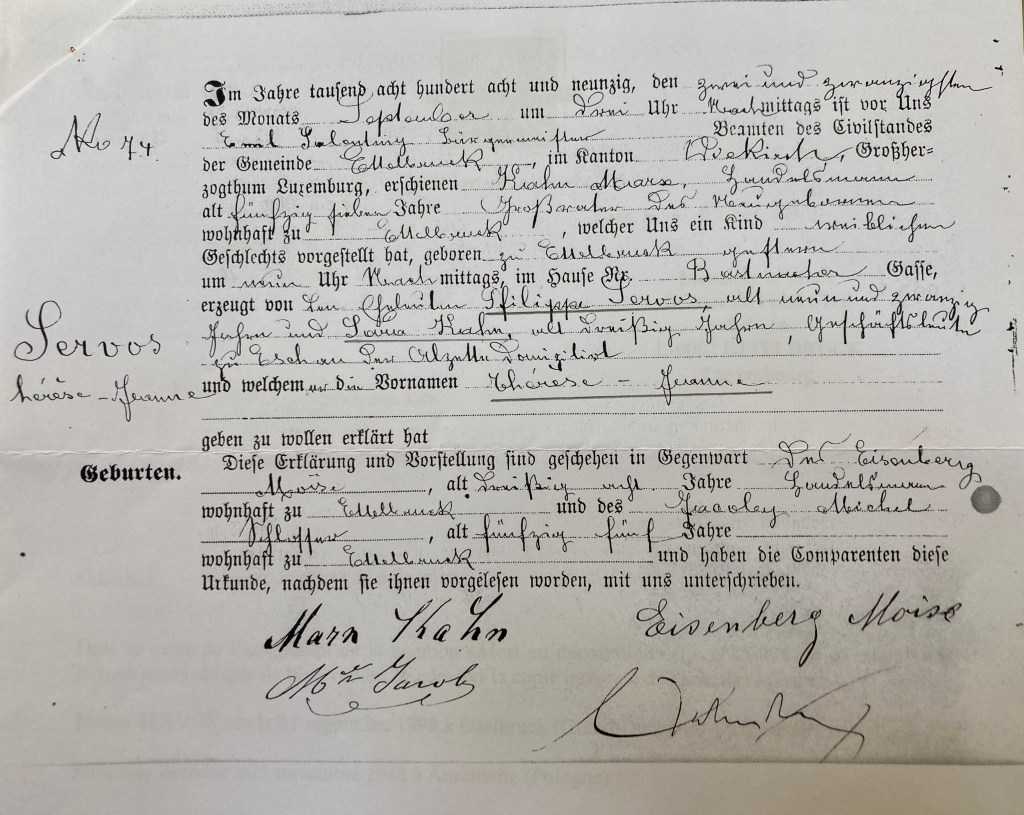 No 74.
Im Jahre tausend acht hundert acht und neunzig, den zwei und zwanzigsten
des Monats September um drei Uhr Nachmittags ist vor Uns
Emil Salentiny Bürgermeister Beamten des Civilstandes
der Gemeinde Ettelbruck, im Kanton Diekirch, Großher-
zogthum Luxemburg, erschienen Kahn Marx, Handelsmann
alt fünfzig sieben Jahre Großvater des Neugebornen
wohnhaft zu Ettelbruck, welcher Uns ein Kind weiblichen
Geschlechts vorgestellt hat, geboren zu Ettelbruck gestern
um neun Uhr Nachmittags, im Hause Nr. Gasse,
erzeugt von den Eheleuten Philippe Servos, alt neun und zwanzig
Servos
Jahren und Kahn, alt dreißig Jahren, Geschäftsleute
zu Esch an der Alzette domizilirt
Thérèse - Jeanne
und welchem er die Vornamen Thérèse - Jeanne
geben zu wollen erklärt hat
Geburten.
Diese Erklärung und Vorstellung sind geschehen in Gegenwart des Eisenberg
Moïse, alt dreißig acht Jahre Handelsmann
wohnhaft zu Ettelbruck und des Jacoby Michel
Schlosser, alt fünfzig fünf Jahre
wohnhaft zu Ettelbruck und haben die Comparenten diese
Urkunde, nachdem sie ihnen vorgelesen worden, mit uns unterschrieben.
Marx Kahn
Eisenberg Moise